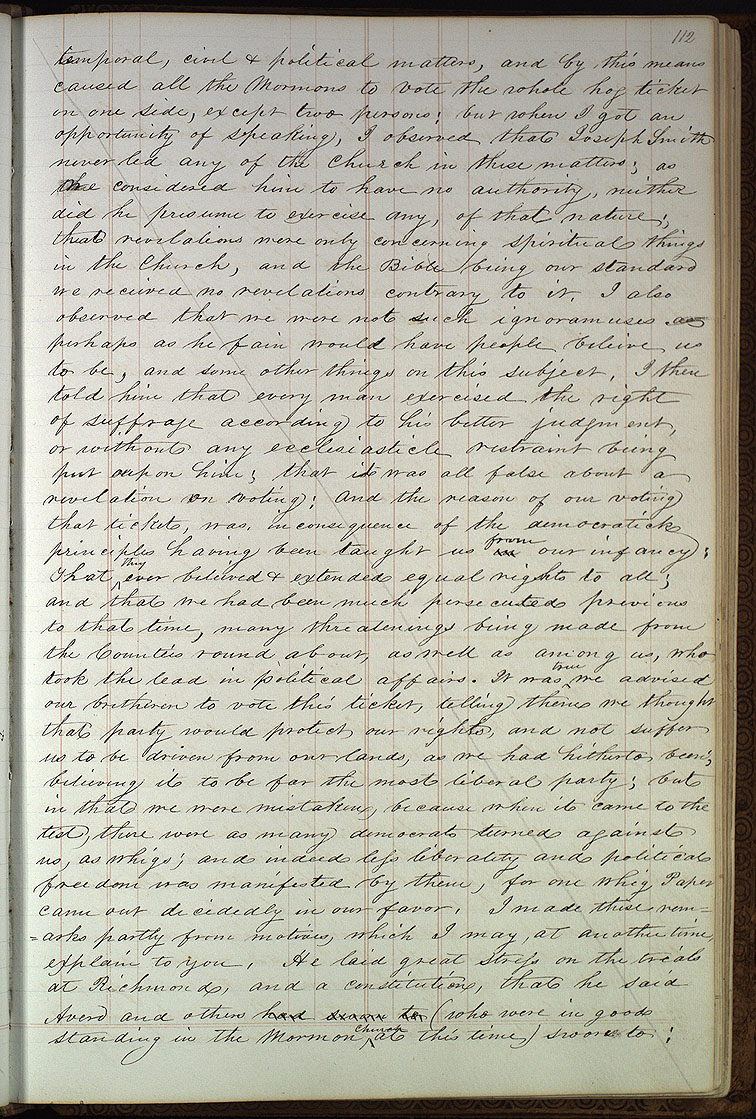 112
temporal, civil & political matters, and by this means
caused all the Mormons to vote the whole hog ticket
on one side, except two persons; but when I got an
opportunity of speaking, I observed that Joseph Smith
never led any of the Church in these matters; as
considered him to have no authority, neither
did he presume to exercise any, of that nature;
that revelations were only concerning spiritual things
in the Church, and the Bible being our standard
we received no revelations contrary to it. I also
observed that we were not such ignoramuses as
perhaps as he fain would have people believe us
to be, and some other things on this subject. I then
told him that every man exercised the right
of suffrage according to his better judgment,
or without any ecclesiasticle restraint being
put upon him; that it was all false about a
revelation on voting; And the reason of our voting
that ticket, was, in consequence of the democratick
principles having been taught us from our infancy;
That they ever believed & extended equal rights to all;
and that we had been much persecuted previous
to that time, many threatenings being made from
the Counties round about, as well as among us, who
took the lead in political affairs. It was true we advised
our bretheren to vote this ticket, telling them we thought
that party would protect our rights, and not suffer
us to be driven from our lands, as we had hitherto been;
believing it to be far the most liberal party; but
in that we were mistaken, because when it came to the
test, there were as many democrats turned against
us, as whigs; and indeed less liberality and political
freedom was manifested by them, for one whig Paper
came out decidedly in our favor. I made these rem=
=arks partly from motives, which I may, at another time,
explain to you. He laid great stress on the treals
at Richmond, and a constitution, that he said
Averd and others had sworn to (who were in good
standing in the Mormon Church at this time) swore to;